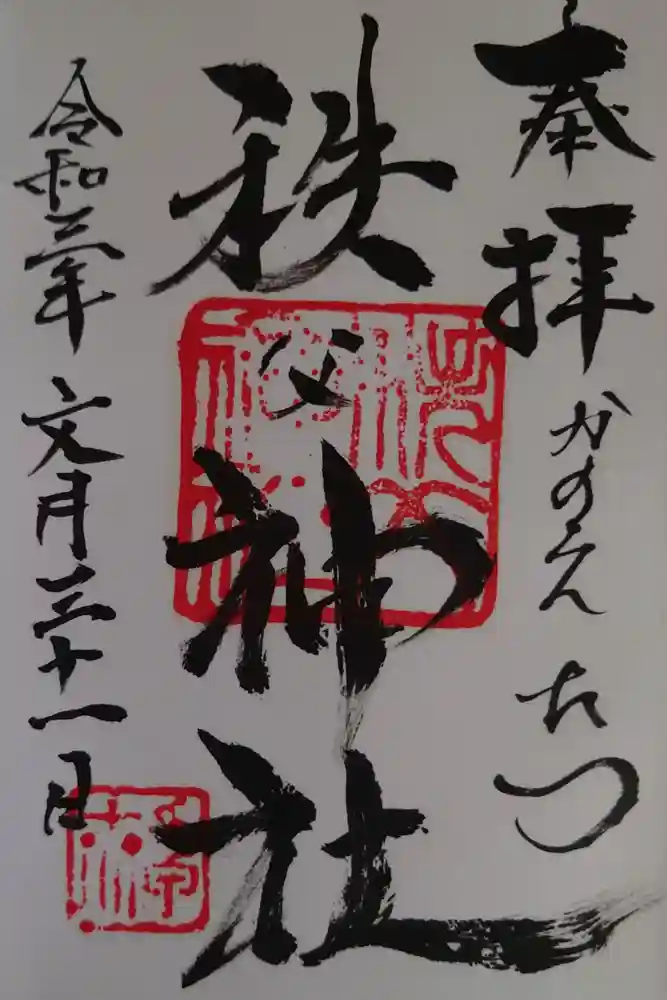 奉拝 かのえ たつ
秩父神社
令和三年 文月三十一日